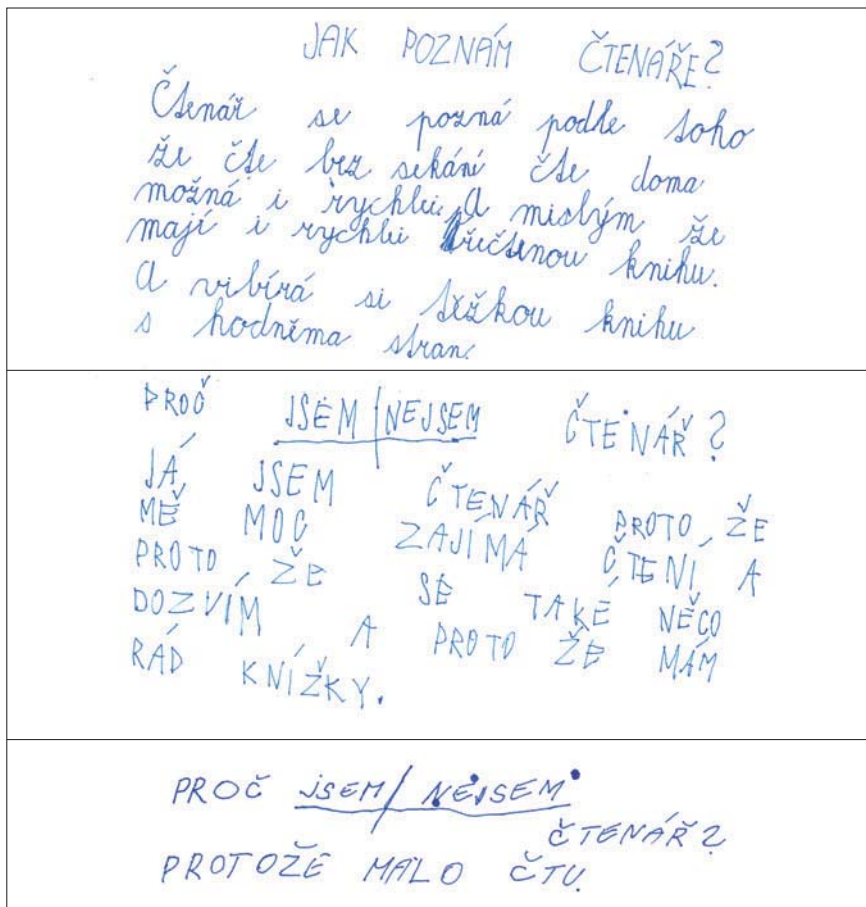 JAK POZNÁM ČTENÁŘE?
Čtenář se pozná podle toho
že čte bez sekání čte doma
možná i rychlei. A mislým že
mají i rychlei přečtenou knihu.
A vibírá si težkou knihu
s hodněma stran.
PROČ JSEM/NEJSEM ČTENÁŘ?
JÁ JSEM ČTENÁŘ PROTO, ŽE
MĚ MOC ZAJÍMÁ ČTENÍ A
PROTO, ŽE SE TAKÉ NĚCO
DOZVÍM A PROTO ŽE MÁM
RÁD KNÍŽKY.
PROČ JSEM/NEJSEM
ČTENÁŘ?
PROTOŽE MALO ČTU.